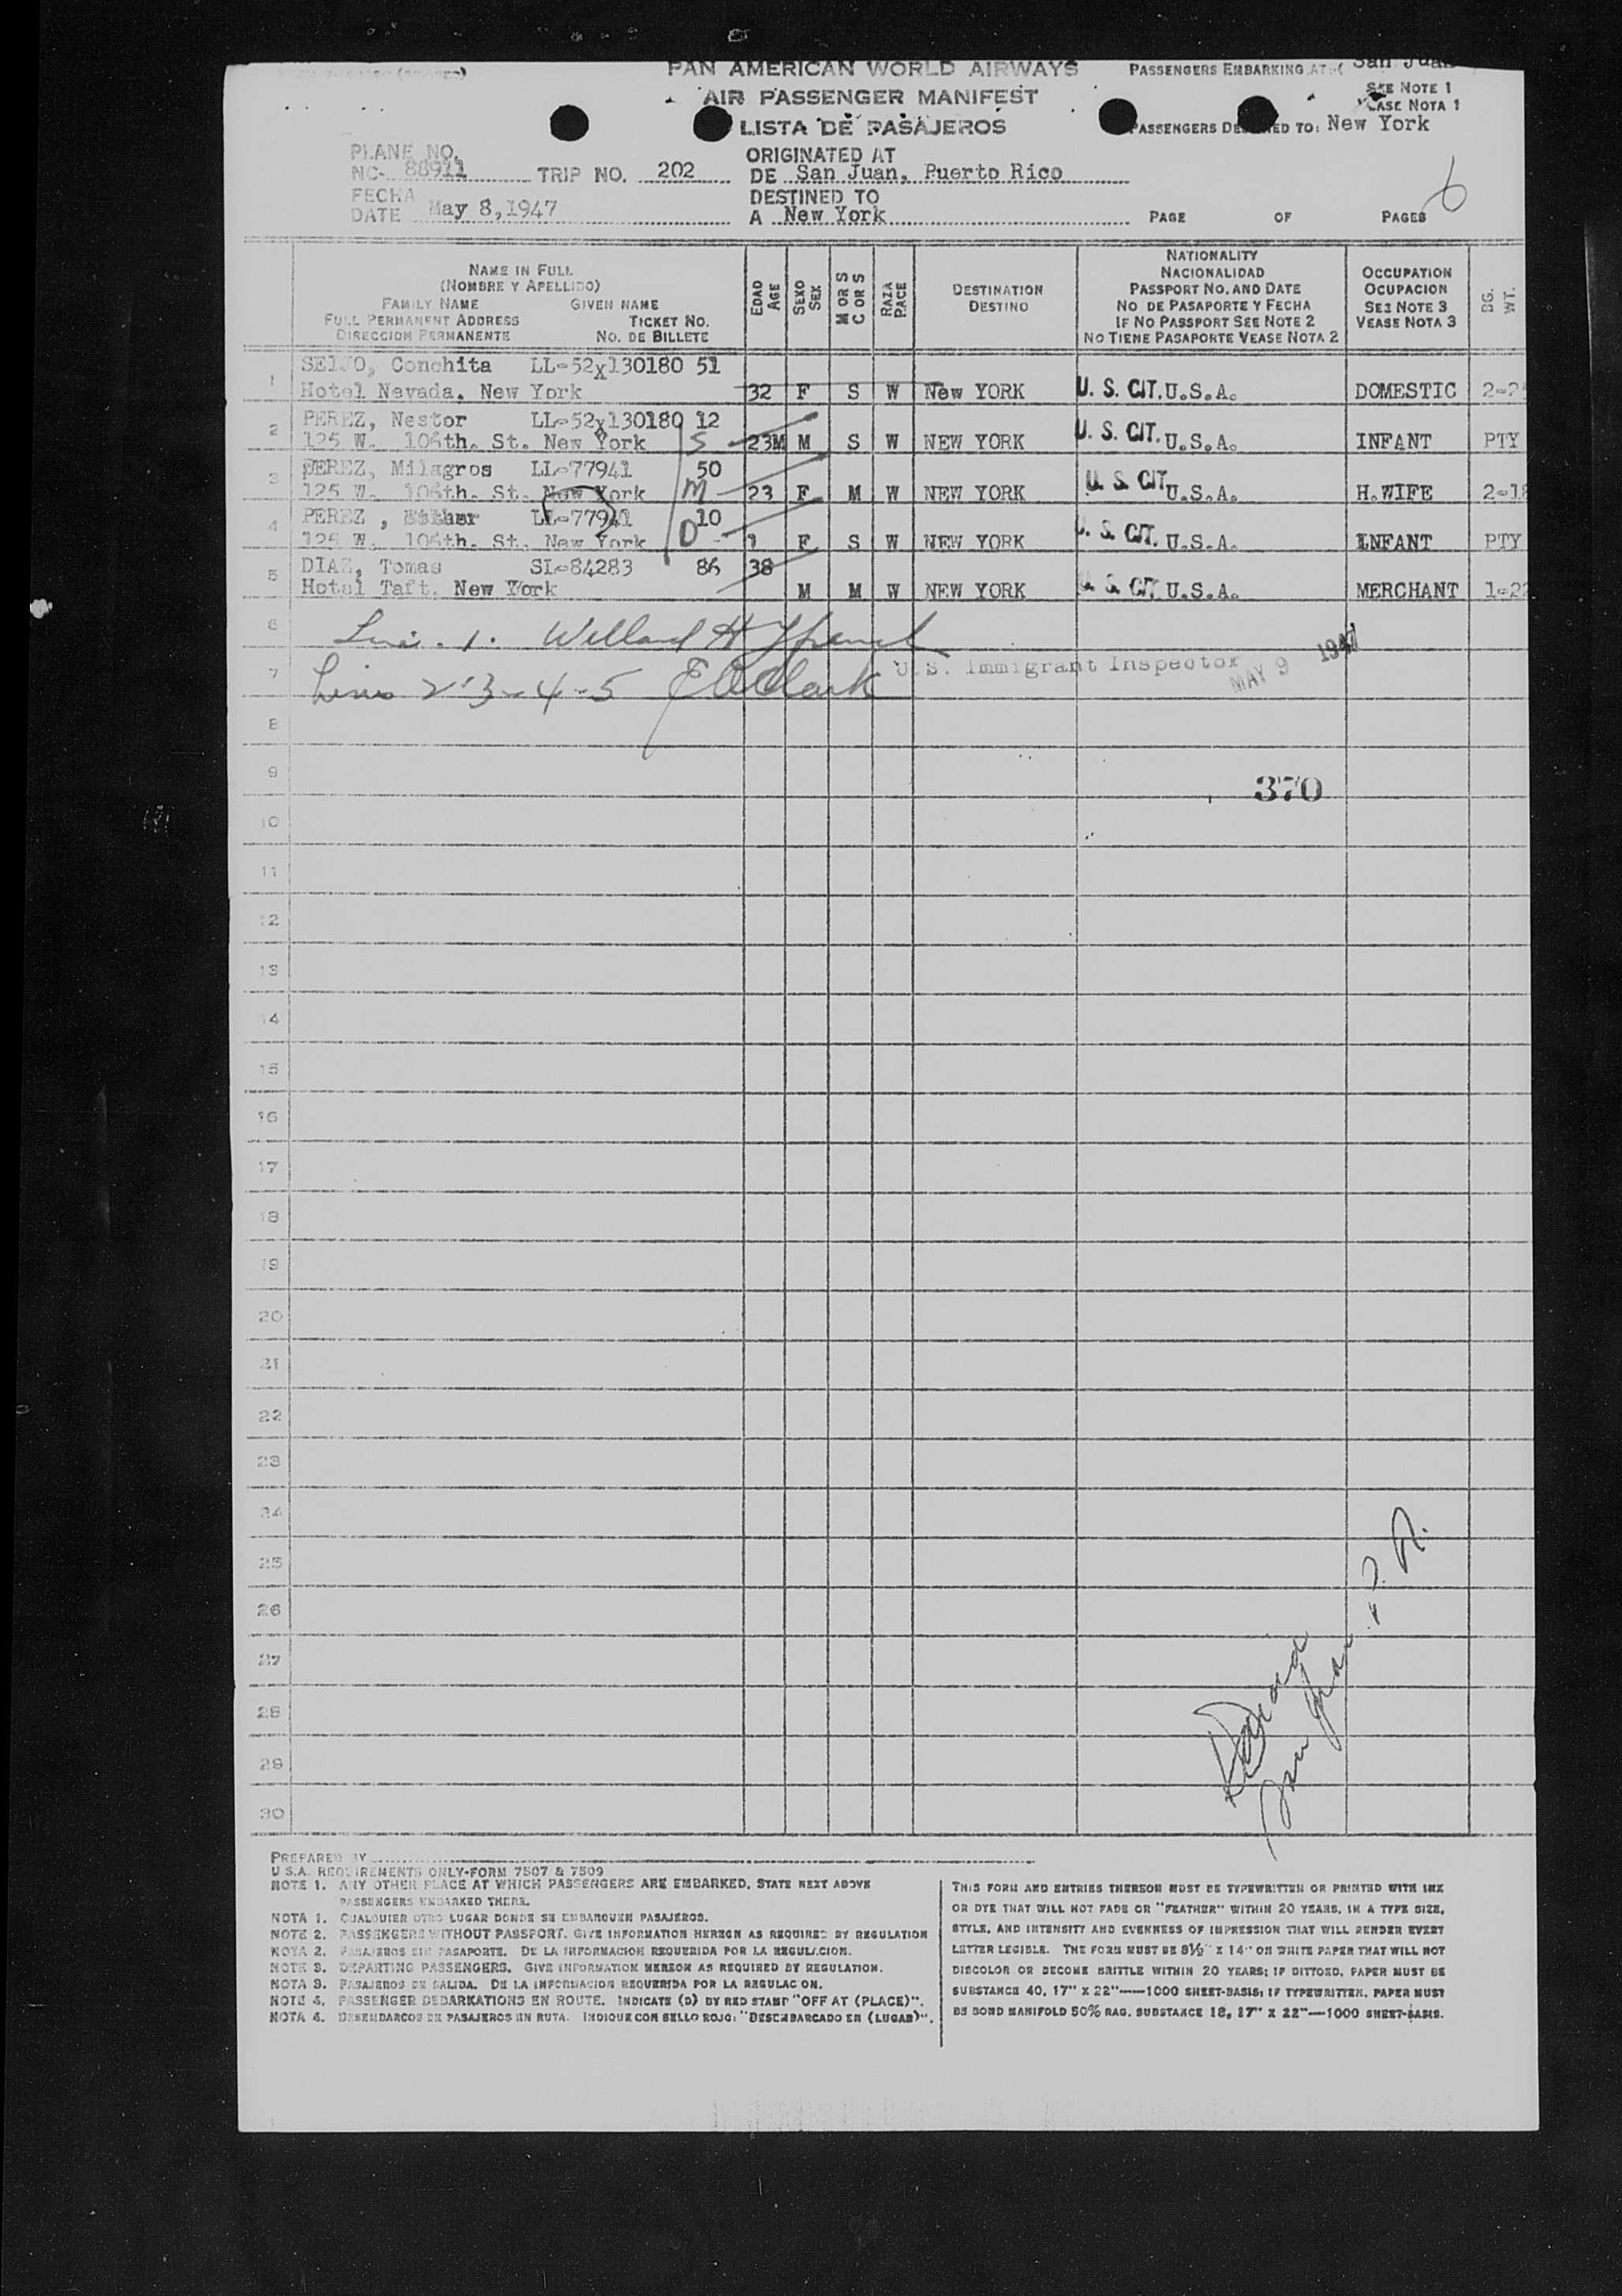 PAN AMERICAN WORLD AIRWAYS
AIR PASSENGER MANIFEST
LISTA DE PASAJEROS
PASSENGERS EMBARKING AT: San Juan
SEE NOTE 1
VEASE NOTA 1
PASSENGERS DESTINED TO: New York
PLANE NO.
NC- 88911 TRIP NO. 202
FECHA
DATE May 8,1947
ORIGINATED AT
DE San Juan, Puerto Rico
DESTINED TO
A New York
PAGE OF PAGES 6
NAME IN FULL
(NOMBRE Y APELLIDO)
FAMILY NAME GIVEN NAME
FULL PERMANENT ADDRESS TICKET NO.
DIRECCION PERMANENTE NO. DE BILLETE
EDAD
AGE
SEXO
SEX
M OR S
C OR S
RAZA
RACE
DESTINATION
DESTINO
NATIONALITY
NACIONALIDAD
PASSPORT NO. AND DATE
NO DE PASAPORTE Y FECHA
IF NO PASSPORT SEE NOTE 2
NO TIENE PASAPORTE VEASE NOTA 2
OCCUPATION
OCUPACION
SEE NOTE 3
VEASE NOTA 3
BG.
WT.
1 SEIJO, Conchita LL-52x130180 51
Hotel Nevada, New York 32 F S W New YORK U. S. CIT. U.S.A. DOMESTIC
2 PEREZ, Nestor LL-52x130180 12
125 W. 106th. St. New York S 23M M S W NEW YORK U. S. CIT. U.S.A. INFANT PTY
3 PEREZ, Milagros LL-77941 50
125 W. 106th. St. New York M 23 F M W NEW YORK U. S. CIT. U.S.A. H.WIFE 2-18
4 PEREZ, Esther LL-77941 10
125 W. 106th. St. New York D F S W NEW YORK U. S. CIT. U.S.A. INFANT PTY
5 DIAZ, Tomas SL-84283 86 38
Hotel Taft, New York M M W NEW YORK U. S. CIT. U.S.A. MERCHANT
6 Line 1. Willard H
7 Lines 2-3-4-5 Clark U.S. Immigrant Inspector MAY 9 1947
8
9 370
10
11
12
13
14
15
16
17
18
19
20
21
22
23
24
25
26
27
28
29
30
San Juan P. R.
PREPARED BY
U.S.A. REQUIREMENTS ONLY-FORM 7507 & 7509
NOTE 1. ANY OTHER PLACE AT WHICH PASSENGERS ARE EMBARKED, STATE NEXT ABOVE
PASSENGERS EMBARKED THERE.
NOTA 1. CUALQUIER OTRO LUGAR DONDE SE EMBARQUEN PASAJEROS.
NOTE 2. PASSENGERS WITHOUT PASSPORT. GIVE INFORMATION HEREON AS REQUIRED BY REGULATION
NOTA 2. PASAJEROS SIN PASAPORTE. DE LA INFORMACION REQUERIDA POR LA REGULACION.
NOTE 3. DEPARTING PASSENGERS. GIVE INFORMATION HEREON AS REQUIRED BY REGULATION.
NOTA 3. PASAJEROS DE SALIDA. DE LA INFORMACION REQUERIDA POR LA REGULACION.
NOTE 4. PASSENGER DEBARKATIONS EN ROUTE. INDICATE (D) BY RED STAMP "OFF AT (PLACE)".
NOTA 4. DESEMBARCOS DE PASAJEROS EN RUTA. INDIQUE CON SELLO ROJO: "DESEMBARCADO EN (LUGAR)".
THIS FORM AND ENTRIES THEREON MUST BE TYPEWRITTEN OR PRINTED WITH INK
OR DYE THAT WILL NOT FADE OR "FEATHER" WITHIN 20 YEARS, IN A TYPE SIZE,
STYLE, AND INTENSITY AND EVENNESS OF IMPRESSION THAT WILL RENDER EVERY
LETTER LEGIBLE. THE FORM MUST BE 8½" X 14" ON WHITE PAPER THAT WILL NOT
DISCOLOR OR BECOME BRITTLE WITHIN 20 YEARS; IF DITTOED, PAPER MUST BE
SUBSTANCE 40, 17" X 22"—1000 SHEET-BASIS; IF TYPEWRITTEN, PAPER MUST
BE BOND MANIFOLD 50% RAG, SUBSTANCE 18, 17" X 22"—1000 SHEET-BASIS.